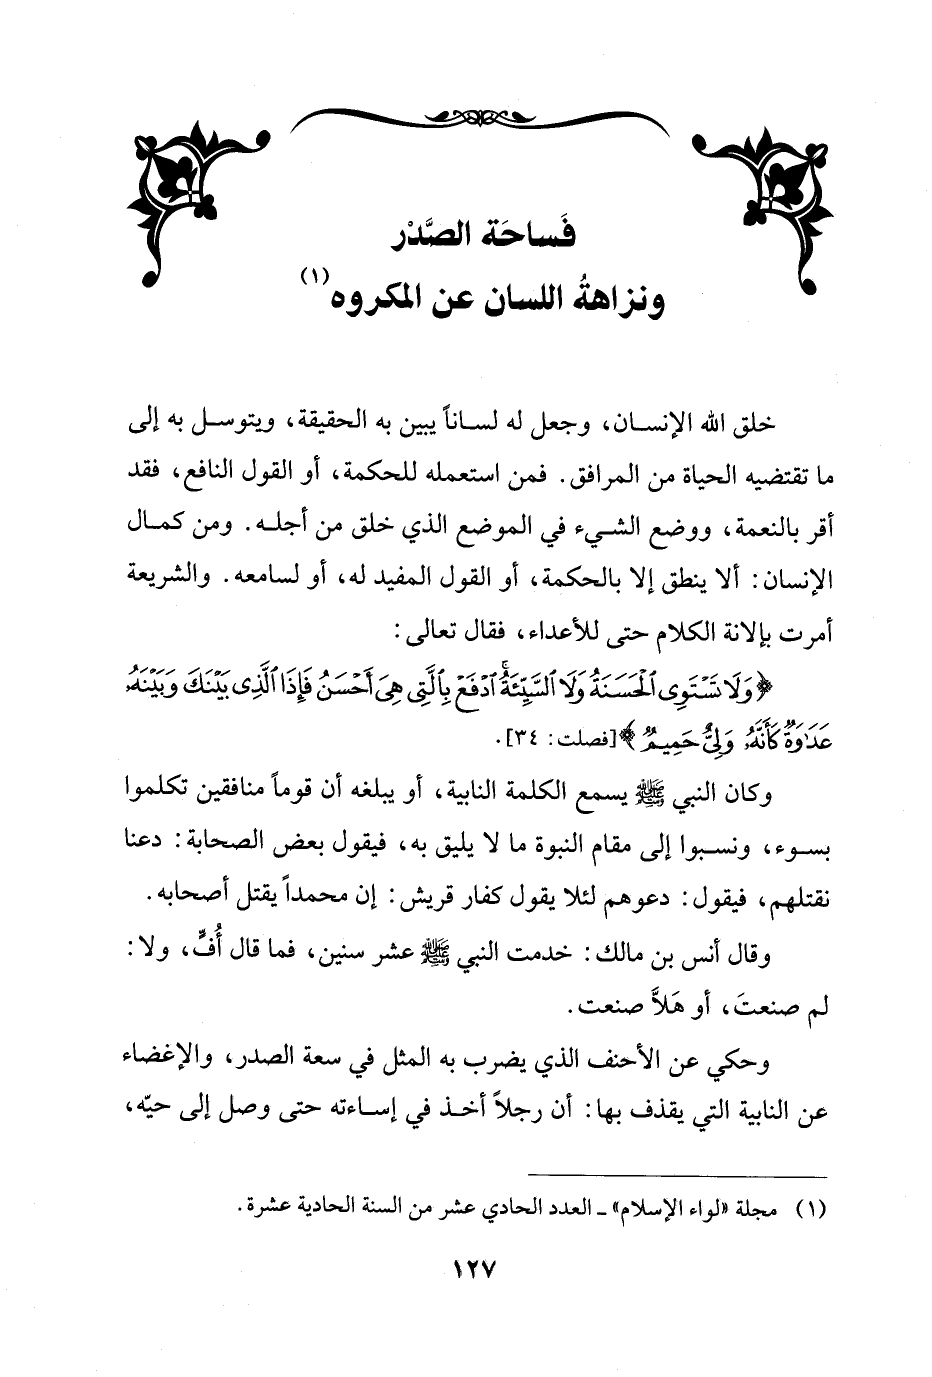 فَساحَة الصَّدْر
ونزاهةُ اللسان عن المكروه(١)
خلق الله الإنسان، وجعل له لساناً يبين به الحقيقة، ويتوسل به إلى
ما تقتضيه الحياة من المرافق. فمن استعمله للحكمة، أو القول النافع، فقد
أقر بالنعمة، ووضع الشيء في الموضع الذي خلق من أجله. ومن كمال
الإنسان: ألا ينطق إلا بالحكمة، أو القول المفيد له، أو لسامعه. والشريعة
أمرت بإلانة الكلام حتى للأعداء، فقال تعالى:
﴿وَلَا تَسْتَوِى ٱلْحَسَنَةُ وَلَا ٱلسَّيِّئَةُ ۚ ٱدْفَعْ بِٱلَّتِى هِىَ أَحْسَنُ فَإِذَا ٱلَّذِى بَيْنَكَ وَبَيْنَهُۥ
عَدَٰوَةٌ كَأَنَّهُۥ وَلِىٌّ حَمِيمٌ﴾ [فصلت: ٣٤].
وكان النبي ﷺ يسمع الكلمة النابية، أو يبلغه أن قوماً منافقين تكلموا
بسوء، ونسبوا إلى مقام النبوة ما لا يليق به، فيقول بعض الصحابة: دعنا
نقتلهم، فيقول: دعوهم لئلا يقول كفار قريش: إن محمداً يقتل أصحابه.
وقال أنس بن مالك: خدمت النبي ﷺ عشر سنين، فما قال أُفٍّ، ولا:
لم صنعتَ، أو هَلاَّ صنعت.
وحكي عن الأحنف الذي يضرب به المثل في سعة الصدر، والإغضاء
عن النابية التي يقذف بها: أن رجلاً أخذ في إساءته حتى وصل إلى حيّه،
(١) مجلة «لواء الإسلام» ـ العدد الحادي عشر من السنة الحادية عشرة.
١٢٧